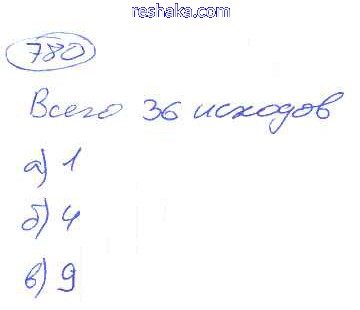 reshaka.com
780
Всего 36 исходов
а) 1
б) 4
в) 9